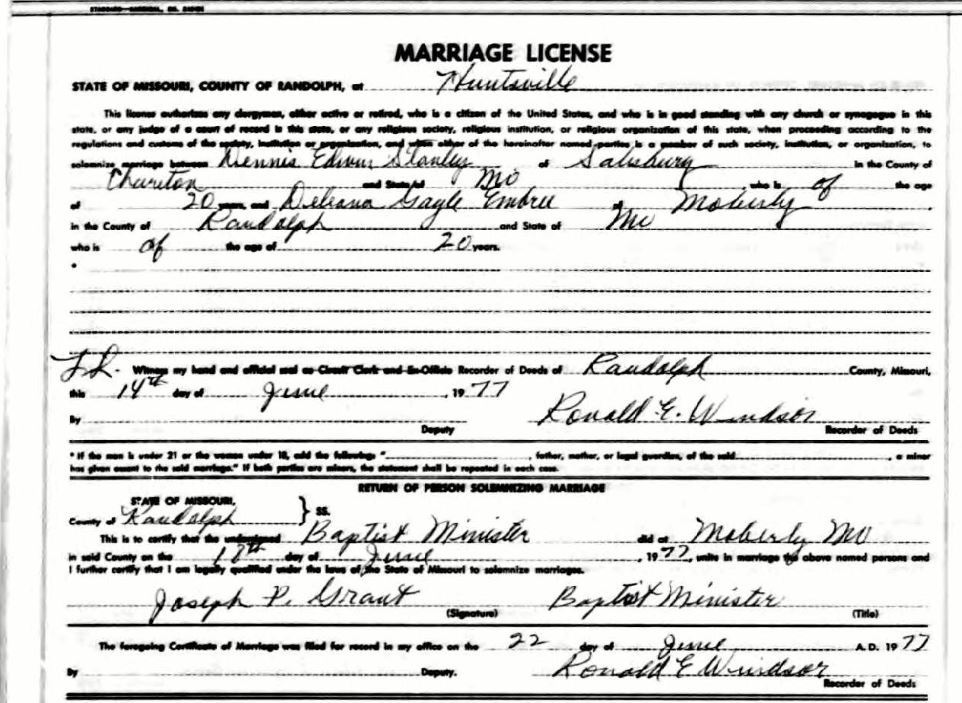 MARRIAGE LICENSE
STATE OF MISSOURI, COUNTY OF RANDOLPH, at Huntsville
This license authorizes any clergyman, either active or retired, who is a citizen of the United States, and who is in good standing with any church or synagogue in this
state, or any judge of a court of record in this state, or any religious society, religious institution, or religious organization of this state, when proceeding according to the
regulations and customs of the society, institution or organization, and when either of the hereinafter named parties is a member of such society, institution, or organization, to
solemnize marriage between Dennis Edwin Stanley of Salisbury in the County of
Chariton and State of Mo who is of the age
of 20 years, and Deleana Gayle Embree of Moberly
in the County of Randolph and State of Mo
who is of the age of 20 years.
*
Witness my hand and official seal as Circuit Clerk and Ex-Officio Recorder of Deeds of Randolph County, Missouri,
this 14th day of June, 1977
Ronald E. Windsor
By Deputy Recorder of Deeds
* If the man is under 21 or the woman under 18, add the following: " , father, mother, or legal guardian, of the said , a minor
has given assent to the said marriage." If both parties are minors, the statement shall be repeated in each case.
RETURN OF PERSON SOLEMNIZING MARRIAGE
STATE OF MISSOURI,
County of Randolph } SS.
This is to certify that the undersigned Baptist Minister did at Moberly Mo
in said County on the 18th day of June, 1977, unite in marriage the above named persons and
I further certify that I am legally qualified under the laws of the State of Missouri to solemnize marriages.
Joseph P. Grant (Signature) Baptist Minister (Title)
The foregoing Certificate of Marriage was filed for record in my office on the 22 day of June A.D. 1977
By Deputy. Ronald E Windsor
Recorder of Deeds